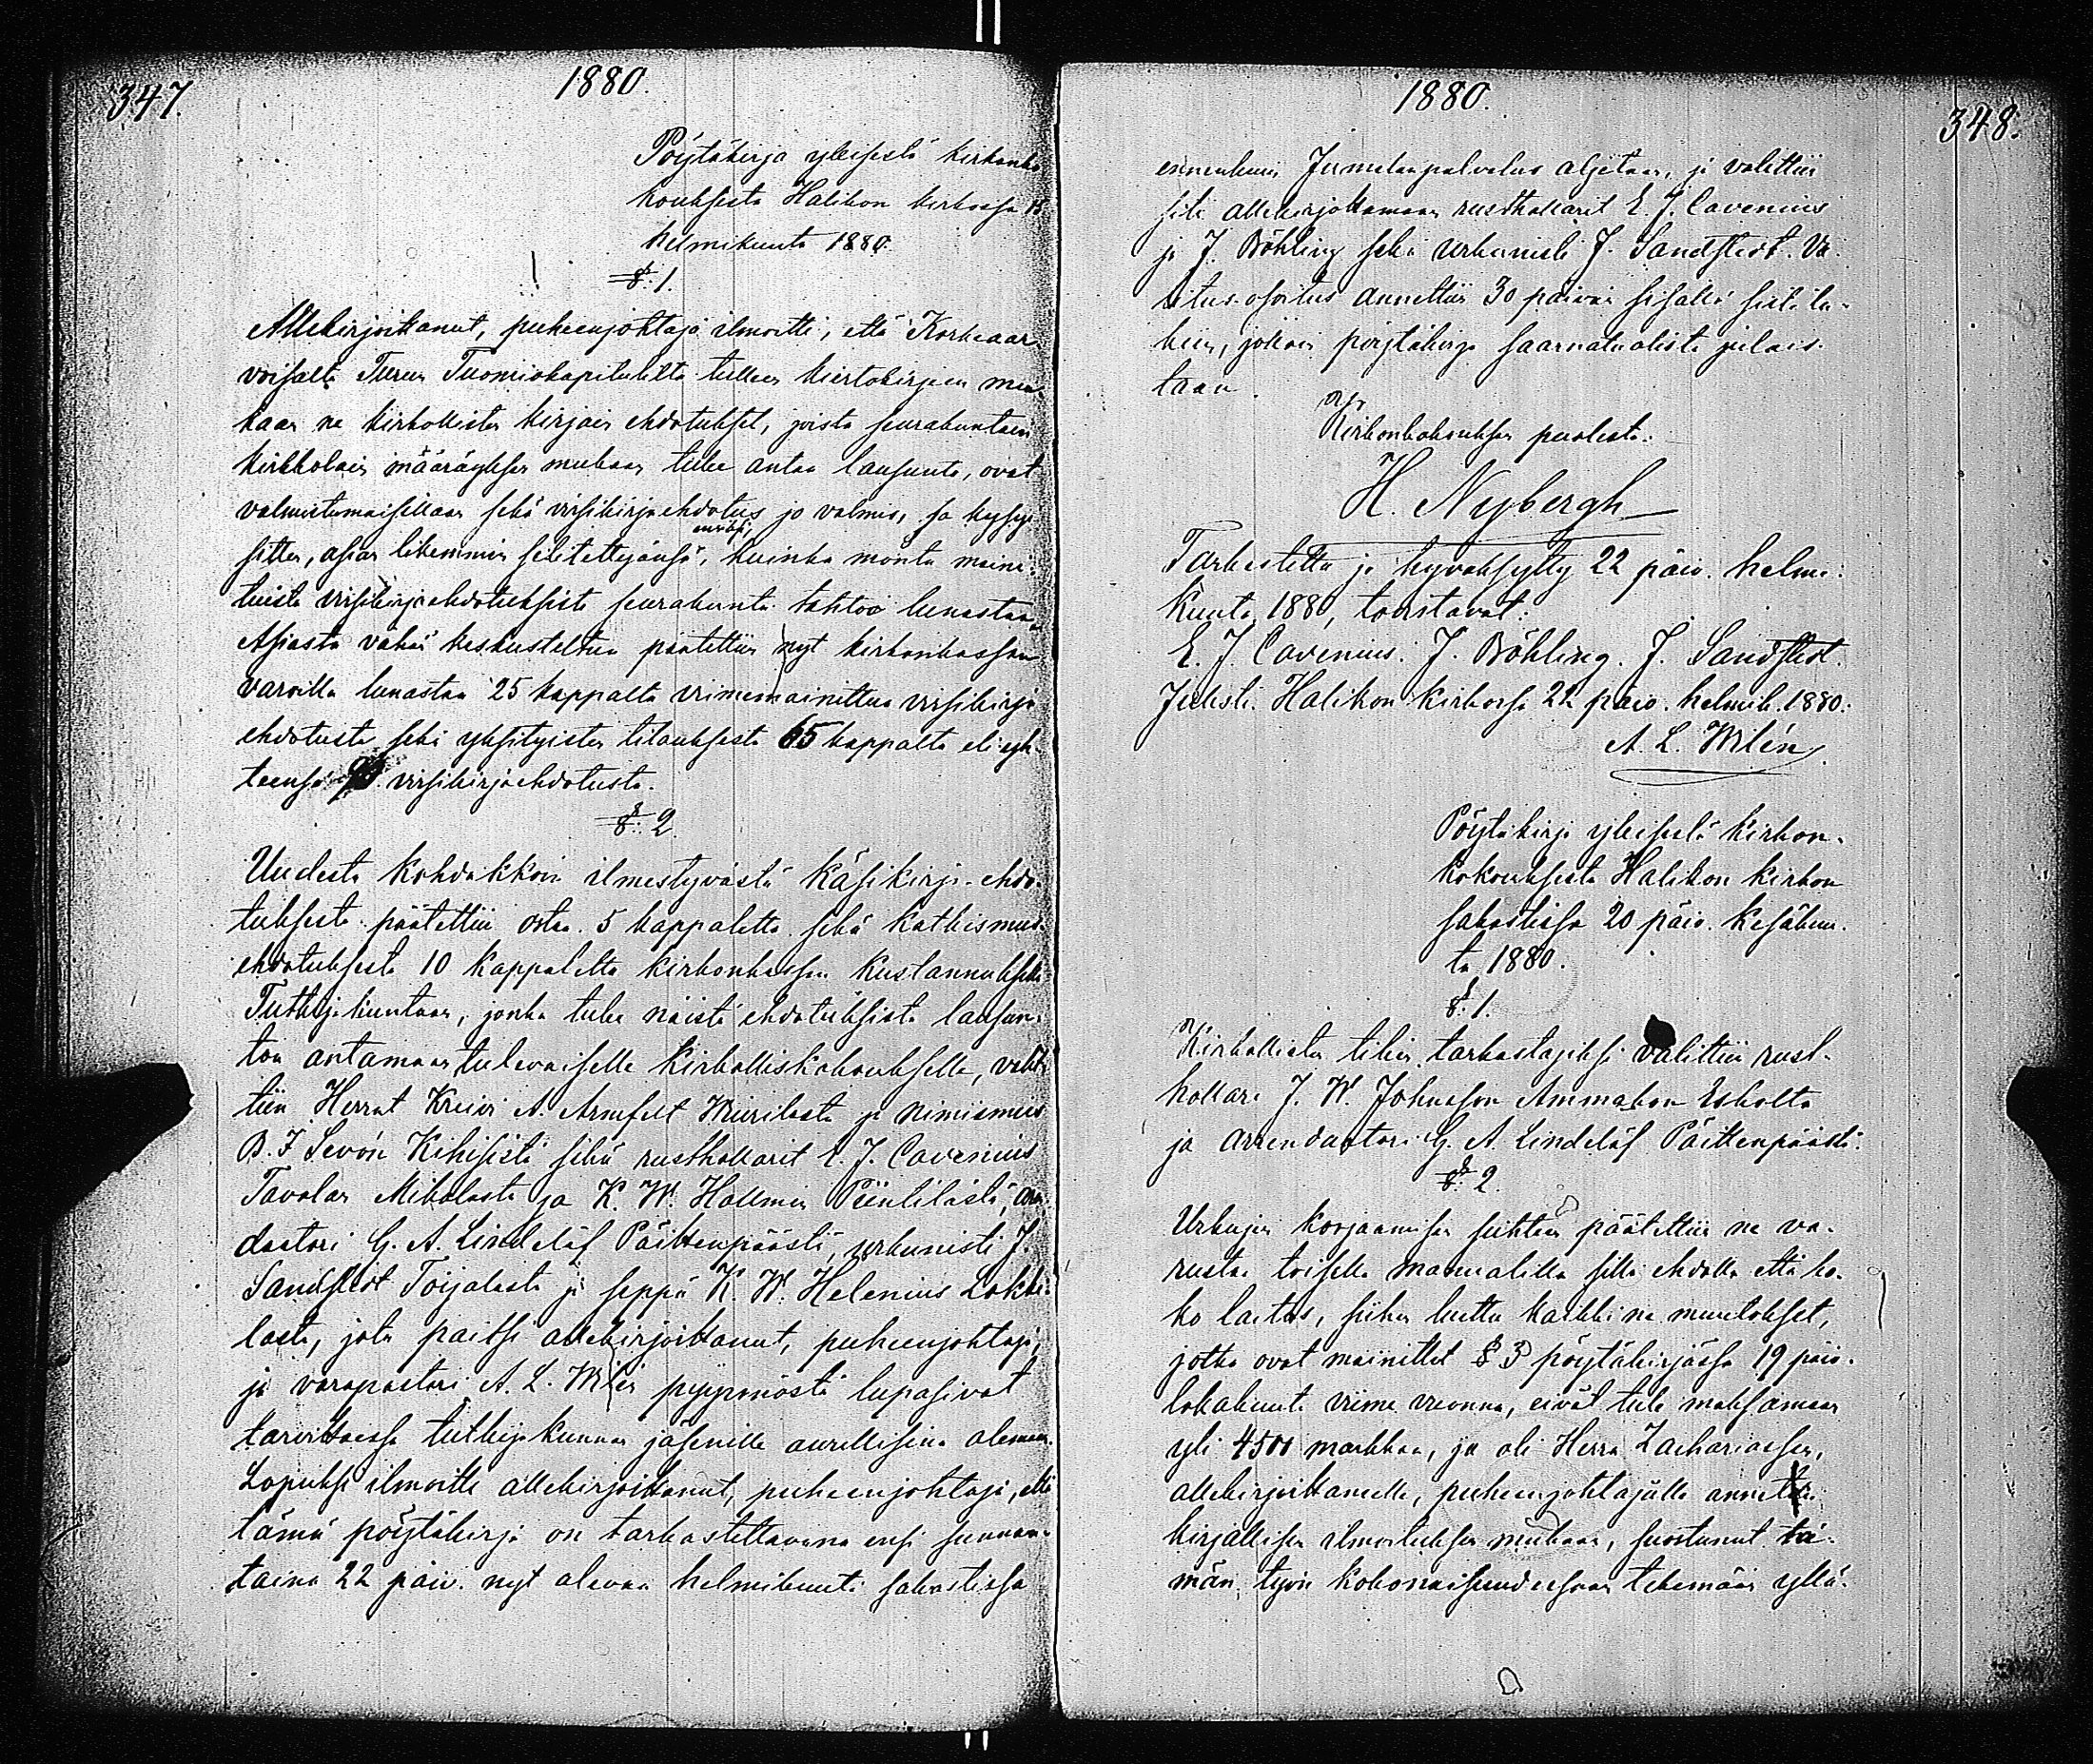 347.
1880.
Pöytäkirja yleisestä kirkonko-
kouksesta Halikon kirkossa 15
helmikuuta 1880.
§: 1.
Allekirjoittanut, puheenjohtaja ilmoitti, että Korkeaar-
voisalta Turun Tuomiokapitulilta tulleen kiertokirjeen mu-
kaan ne kirkollisten kirjain ehdotukset, joista seurakuntain
kirkkolain määräyksen mukaan tulee antaa lausunto, ovat
valmistumaisillaan sekä virsikirjaehdotus jo valmis, ja kysyi
sitten, asian likemmin selitettyänsä, kuinka monta maini-
tuista virsikirjaehdotuksista seurakunta tahtoo lunastaa.
Asiasta vähän keskusteltua päätettiin nyt kirkonkassan
varoilla lunastaa 25 kappaletta viimemainittua virsikirja
ehdotusta sekä yksityisten tilauksesta 65 kappaletta eli yh-
teensä 90 virsikirjaehdotusta.
§: 2.
Uudesta kohdakkoin ilmestyvästä Käsikirja-ehdo-
tuksesta päätettiin ostaa 5 kappaletta sekä katkismus-
ehdotuksesta 10 kappaletta kirkonkassan kustannuksella.
Tutkijakuntaan, jonka tulee näistä ehdotuksista lausun-
ton antamaan tulevaiselle kirkolliskokoukselle, valit-
tiin Herrat Kreivi A. Armfelt Wiurilasta ja nimismies
B. F Sevón Kihisistä sekä rusthollarit E. J. Cavenius
Tavolan Mikolasta ja K. W. Hollmen Pöntilästä, arren-
daatori G. A. Lindelöf Päittenpäästä, urkunisti J.
Sandstedt Toijalasta ja seppä K. W. Helenius Lokki-
lasta, jota paitsi allekirjoittanut, puheenjohtaja,
ja varapastori A. L. Wilén pyynnöstä lupasivat
tarvittaessa tutkijakunnan jäsenille avullisina olemaan.
Lopuksi ilmoitti allekirjoittanut, puheenjohtaja, että
tämä pöytäkirja on tarkastettavana ensi sunnun-
taina 22 päiv. nyt olevaa helmikuuta sakastissa
1880.
348.
ennenkuin Jumalanpalvelus aljetaan, ja valittiin
sitä allekirjoittamaan rusthollarit E. J. Cavenius
ja J. Böhling sekä urkunisti J. Sandstedt. Va-
litus-osoitus annettiin 30 päivän sisällä siitä lu-
kien, jolloin pöytäkirja saarnatuolista julais-
taan.
Kirkonkokouksen puolesta:
H. Nybergh
Tarkastettu ja hyväksytty 22 päiv. helmi-
kuuta 1880, toistavat:
E. J. Cavenius. J. Böhling. J. Sandstedt.
Julisti Halikon kirkossa 22 päiv. helmik. 1880:
A. L. Wilén
Pöytäkirja yleisestä kirkon-
kokouksesta Halikon kirkon
sakastissa 20 päiv. Kesäkuu-
ta 1880.
§: 1.
Kirkollisten tilien tarkastajiksi valittiin rust-
hollari J. W. Johnsson Ammakon Uskolta
ja arrendaatori G. A. Lindelöf Päittenpäästä.
§: 2.
Urkujen korjaamisen suhteen päätettiin ne va-
rustaa toisella manualilla sillä ehdolla että ko-
ko laitos, siihen luettu kaikki ne muutokset,
jotka ovat mainitut § 3 pöytäkirjassa 19 päiv.
lokakuuta viime vuonna, eivät tule maksamaan
yli 4500 markkaa, ja oli Herra Zachariassen,
allekirjoittaneelle, puheenjohtajalle annetun
kirjallisen ilmoituksen mukaan, suostunut tä-
män työn kokonaisuudessaan tekemään yllä-